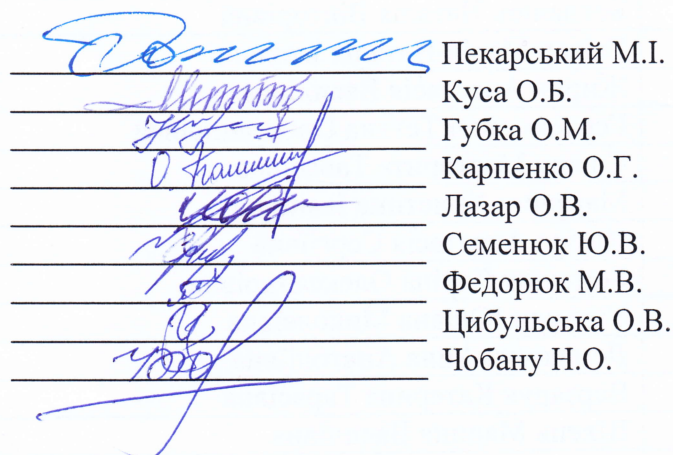 Пекарський М.І.
Куса О.Б.
Губка О.М.
Карпенко О.Г.
Лазар О.В.
Семенюк Ю.В.
Федорюк М.В.
Цибульська О.В.
Чобану Н.О.